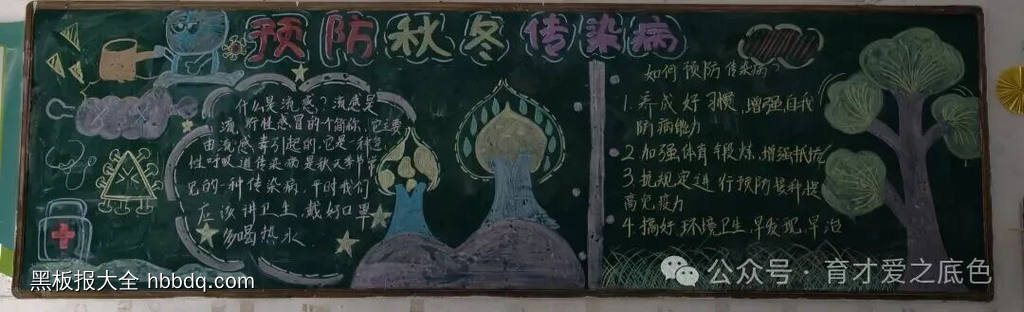 预防秋冬传染病
什么是流感?流感是
流行性感冒的简称,它主要
由流感毒引起的,它是一种急
性呼吸道传染病是秋天季节常
见的一种传染病,平时我们
应该讲卫生,戴好口罩
多喝热水
如何预防传染病?
1.养成好习惯,增强自我
防病能力
2.加强体育锻炼,增强抵抗
3.规定进行预防接种提
高免疫力
4.搞好环境卫生,早发现,早治
黑板报大全 hbbdq.com
公众号·育才爱之底色